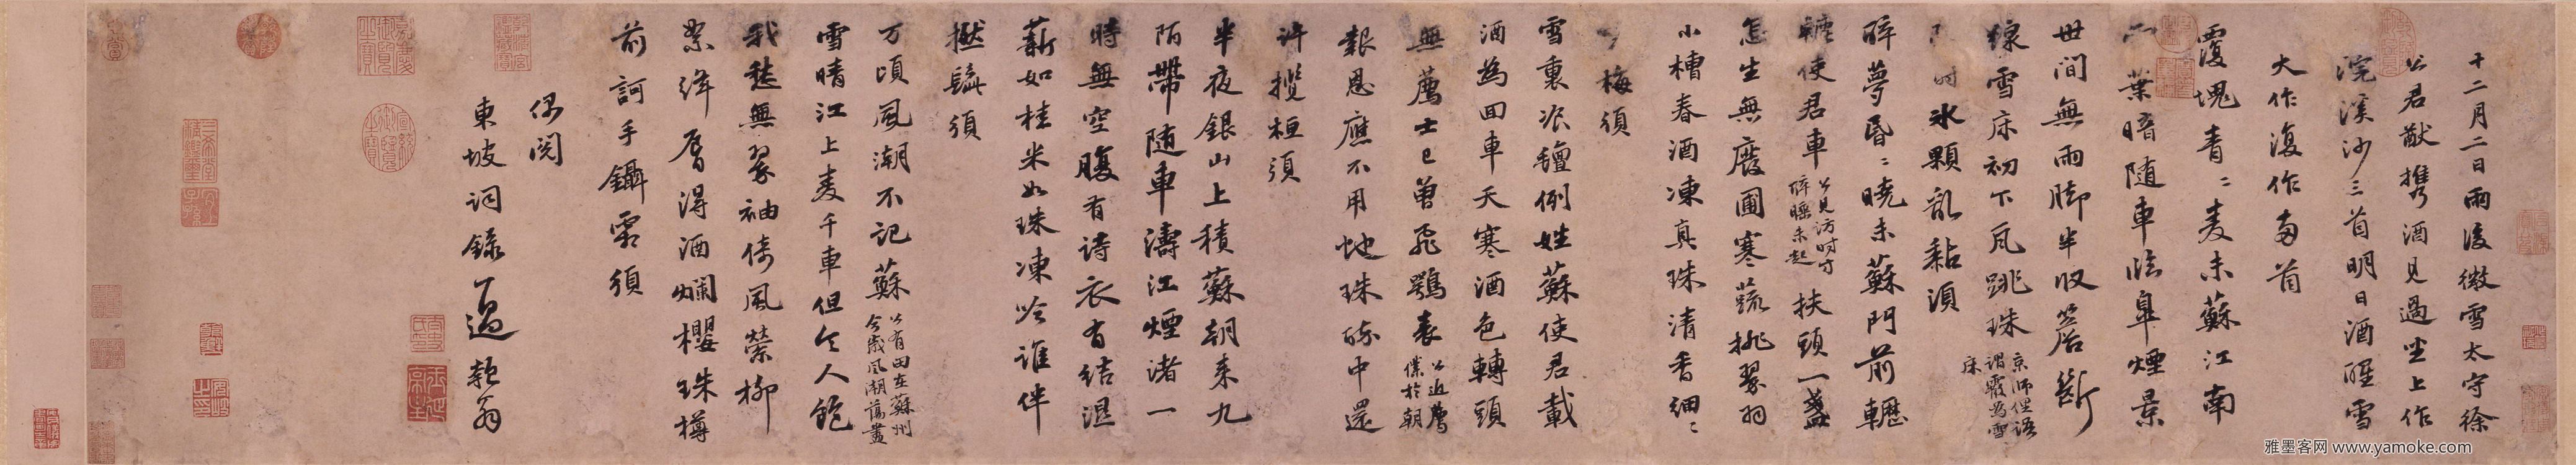 十二月二日雨後微雪太守徐
公君猷携酒見過坐上作
浣溪沙三首明日酒醒雪
大作復作兩首
覆塊青〻麥未蘇江南
葉暗隨車臨皋煙景
世間無雨脚半收簷斷
線雪床初下瓦跳珠
京師俚語
謂霰為雪
床
時冰顆亂黏須
醉夢昏〻曉未蘇門前轣
轆使君車
公見訪時方
醉睡未起
扶頭一盞
怎生無廢圃寒蔬挑翠羽
小槽春酒凍真珠清香細〻
梅須
雪裏飡氊例姓蘇使君載
酒為回車天寒酒色轉頭
無薦士已曾飛鶚表
公近薦
僕於朝
報恩應不用虵珠醉中還
許攬桓須
半夜銀山上積蘇朝來九
陌帶隨車濤江煙渚一
時無空腹有詩衣有結濕
薪如桂米如珠凍吟誰伴
撚髭須
万頃風潮不記蘇
公有田在蘇州
今歲風潮蕩盡
雪晴江上麥千車但令人飽
我愁無翠袖倚風縈柳
絮絳脣得酒爛櫻珠樽
前呵手鑷霜須
偶閱
東坡詞錄一過 翁
雅墨客网 www.yamoke.com